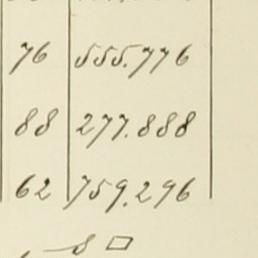 76 555.776
88 277.888
62 759.296